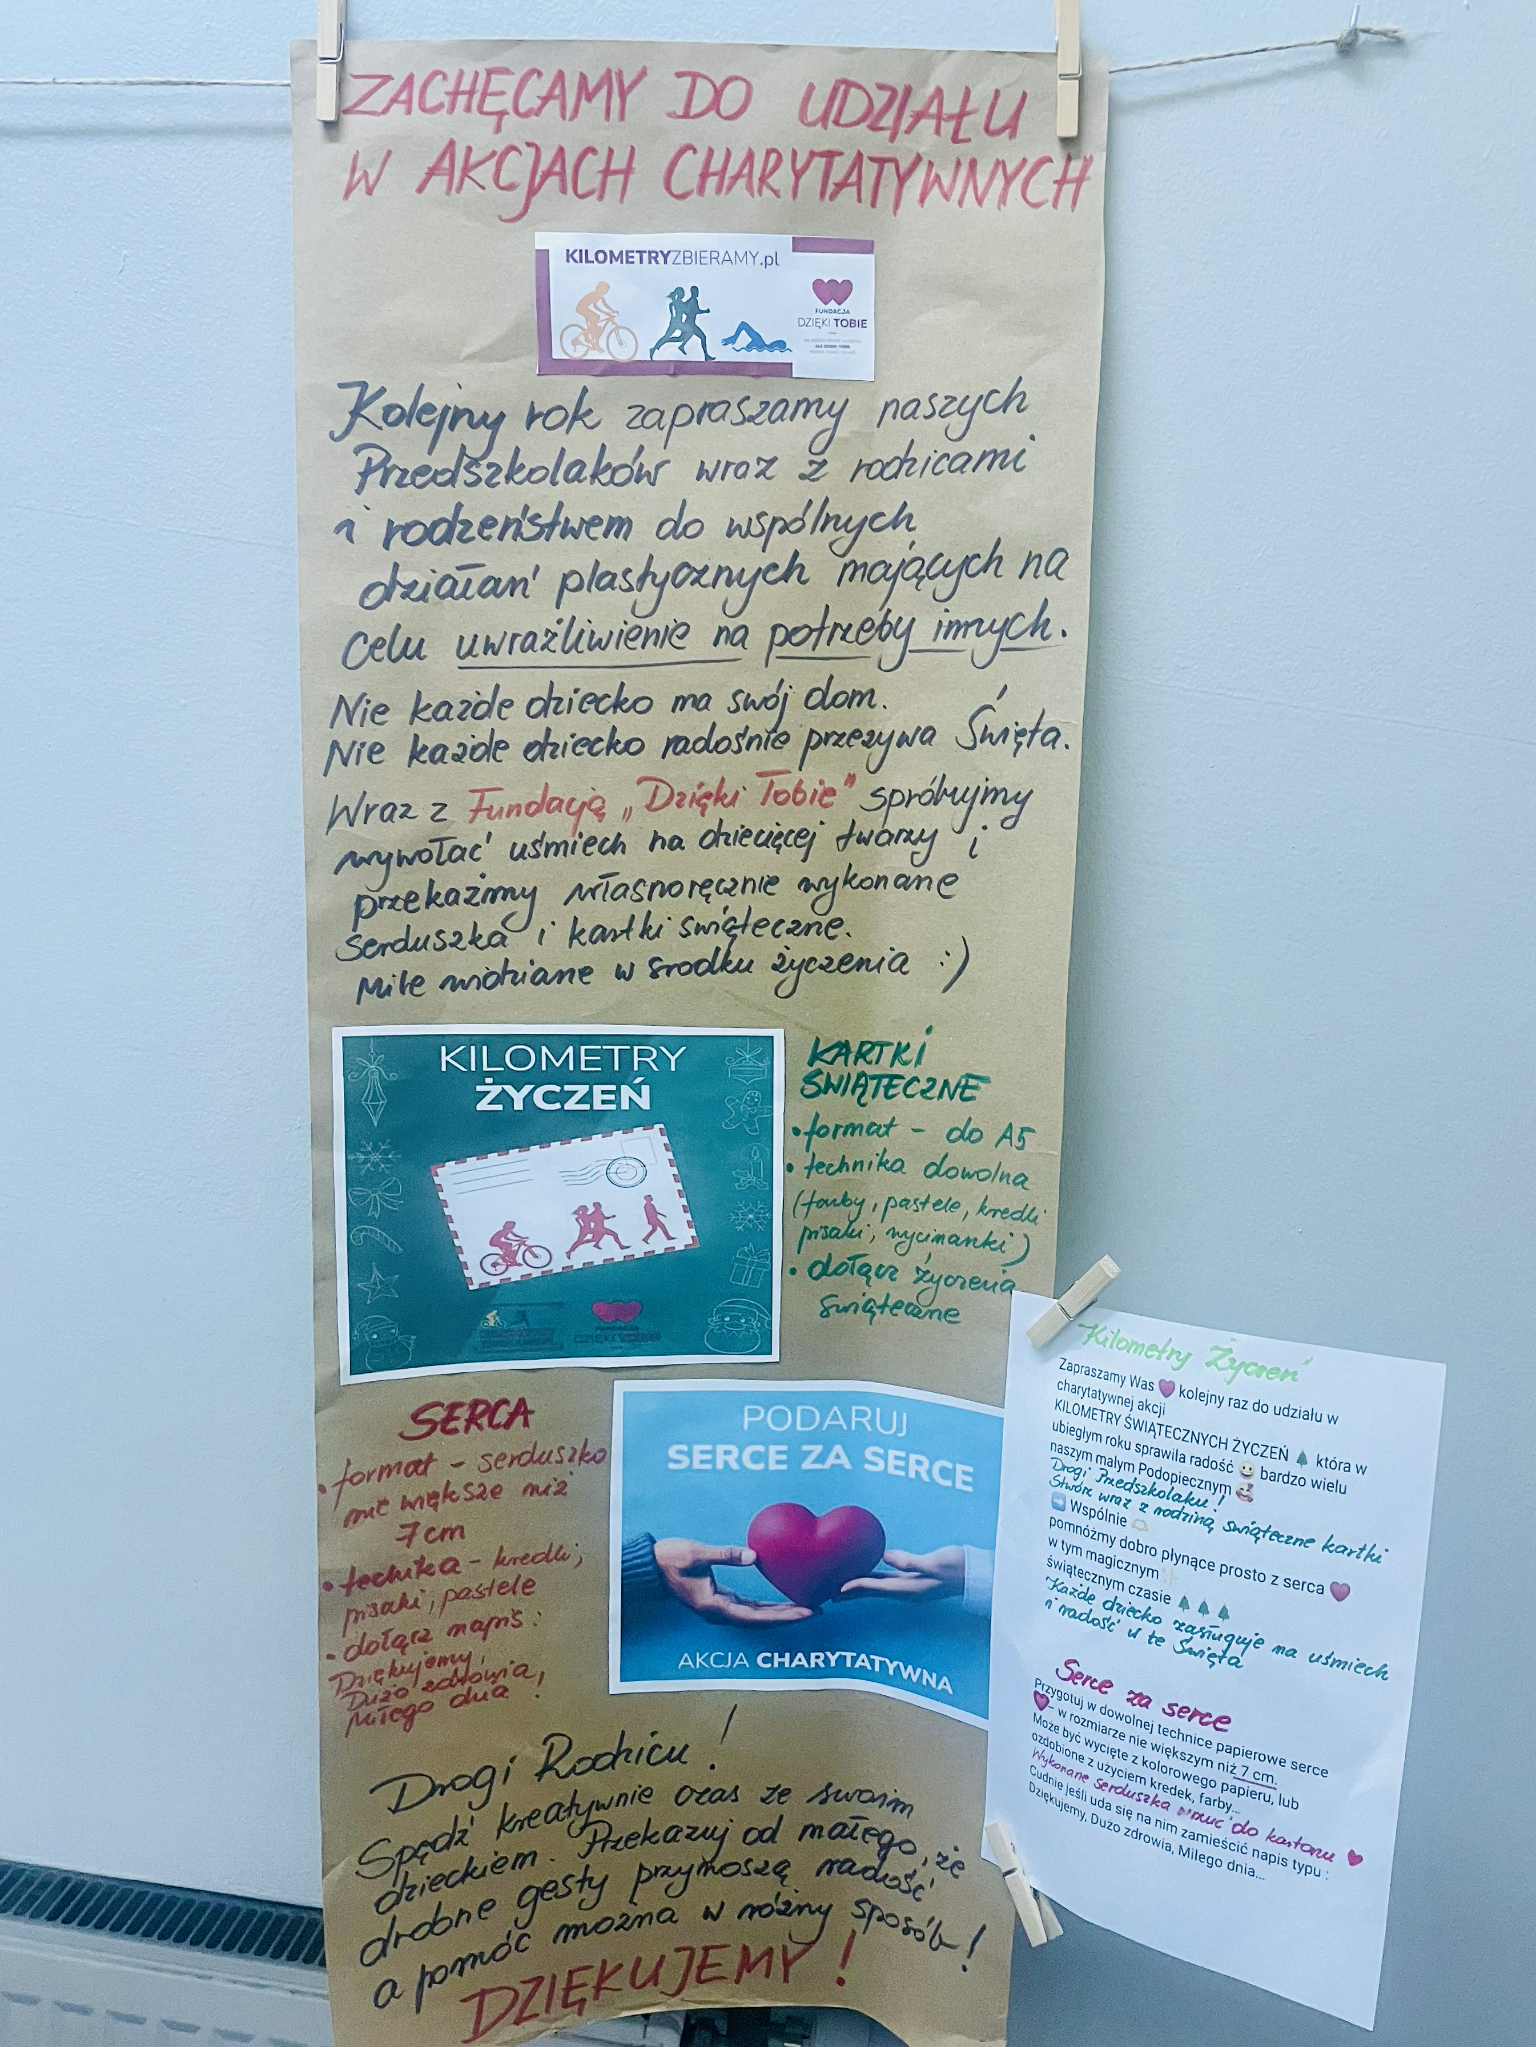 ZACHĘCAMY DO UDZIAŁU
W AKCJACH CHARYTATYWNYCH
KILOMETRYZBIERAMY.pl
FUNDACJA
DZIĘKI TOBIE
Kolejny rok zapraszamy naszych
Przedszkolaków wraz z rodzicami
i rodzeństwem do wspólnych
działań plastycznych mających na
celu uwrażliwienie na potrzeby innych.
Nie każde dziecko ma swój dom.
Nie każde dziecko radośnie przezywa Święta.
Wraz z Fundacją „Dzięki Tobie" spróbujmy
wywołać uśmiech na dziecięcej twarzy i
przekażmy własnoręcznie wykonane
serduszka i kartki świąteczne.
Mile widziane w środku życzenia :)
KILOMETRY
ŻYCZEŃ
KARTKI
ŚWIĄTECZNE
• format - do A5
• technika dowolna
(farby, pastele, kredki
pisaki, wycinanki)
• dołącz życzenia
świąteczne
SERCA
• format - serduszko
nie większe niż
7cm
• technika - kredki,
pisaki, pastele
• dołącz napis:
Dziękujemy,
Dużo zdrowia,
Miłego dnia!
PODARUJ
SERCE ZA SERCE
AKCJA CHARYTATYWNA
Drogi Rodzicu!
Spędź kreatywnie czas ze swoim
dzieckiem. Przekazuj od małego, że
drobne gesty przynoszą radość
a pomóc można w różny sposób!
DZIĘKUJEMY!
"Kilometry Życzeń"
Zapraszamy Was 💜 kolejny raz do udziału w
charytatywnej akcji
KILOMETRY ŚWIĄTECZNYCH ŻYCZEŃ 🌲 która w
ubiegłym roku sprawiła radość 😀 bardzo wielu
naszym małym Podopiecznym
Drogi Przedszkolaku!
Stwórz wraz z rodziną świąteczne kartki
➡️ Wspólnie
pomnóżmy dobro płynące prosto z serca 💜
w tym magicznym
świątecznym czasie 🌲🌲🌲
Każde dziecko zasługuje na uśmiech
i radość w te Święta
Serce za serce
Przygotuj w dowolnej technice papierowe serce
💜 - w rozmiarze nie większym niż 7 cm.
Może być wycięte z kolorowego papieru, lub
ozdobione z użyciem kredek, farby...
Wykonane serduszka wrzuć do kartonu ♥
Cudnie jeśli uda się na nim zamieścić napis typu :
Dziękujemy, Dużo zdrowia, Miłego dnia...